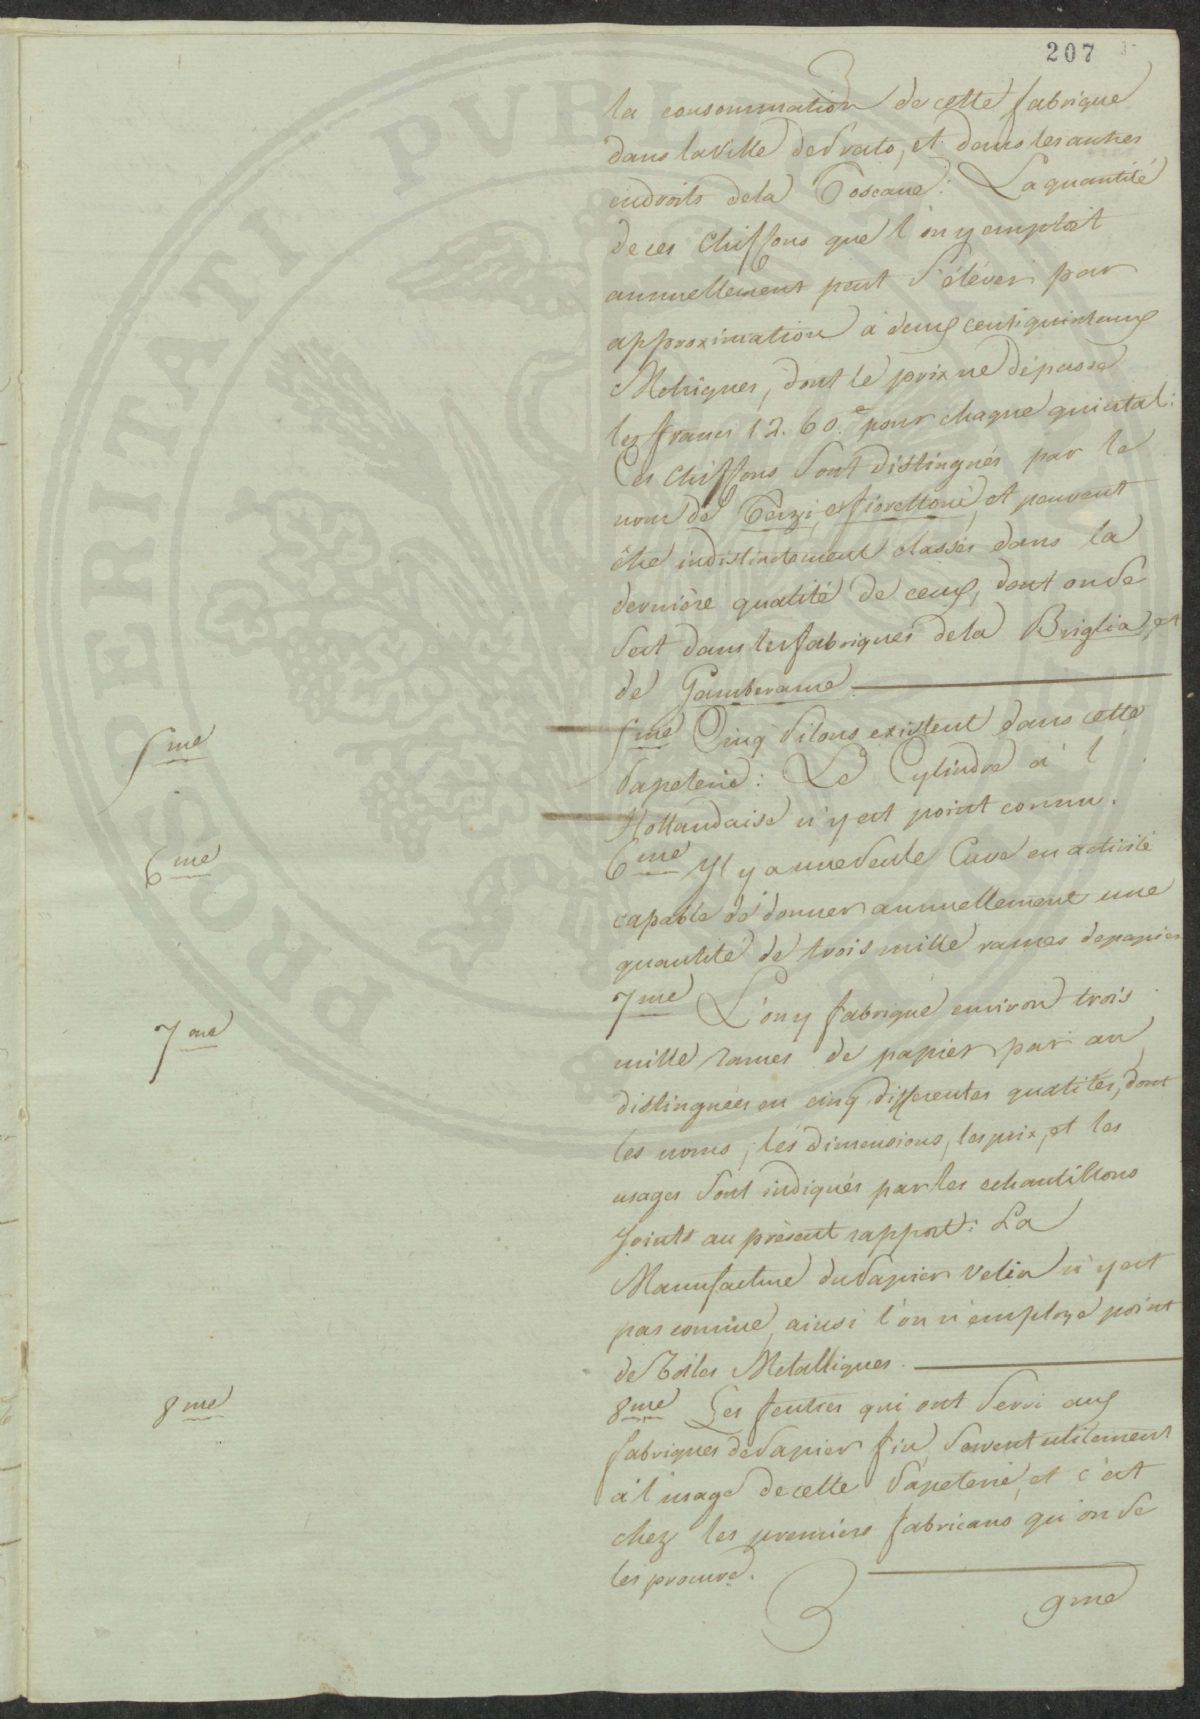 207
la consommation de cette fabrique
dans la Ville de Prato, et dans les autres
endroits de la Toscane: La quantité
de ces Chiffons que l'on y emploit
annuellement peut s'éléver par
approximation à deux cent quintaux
Métriques, dont le prix ne dépasse
les francs 12. 60.c pour chaque quintal:
Ces Chiffons sont distingués par le
nom de Terzi, et fiorettoni, et peuvent
être indistinctement classés dans la
dernière qualité de ceux, dont on se
sert dans les fabriques de la Briglia, et
de Gamberame.
5me
5me Cinq Pilons existent dans cette
Papeterie: Le Cylindre à l'
Hollandaise n'y est point connu.
6me
6me Il y a une seule Cuve en activité
capable de donner annuellement une
quantité de trois mille rames de papier
7me
7me L'on y fabrique environ trois
mille rames de papier par an
distinguées en cinq differentes qualités, dont
les noms, les dimensions, les prix, et les
usages sont indiqués par les echantillons
Joints au présent rapport: La
Manufacture du Papier Velin n'y est
pas connue, ainsi l'on n'employe point
de Toiles Metalliques.
8me
8me Les feutres qui ont servi aux
fabriques de Papier fin, servent utilement
à l'usage de cette Papeterie, et c'est
chez les premiers fabricans qu'on se
les procure.
9me
PROSPERITATI PVBLI